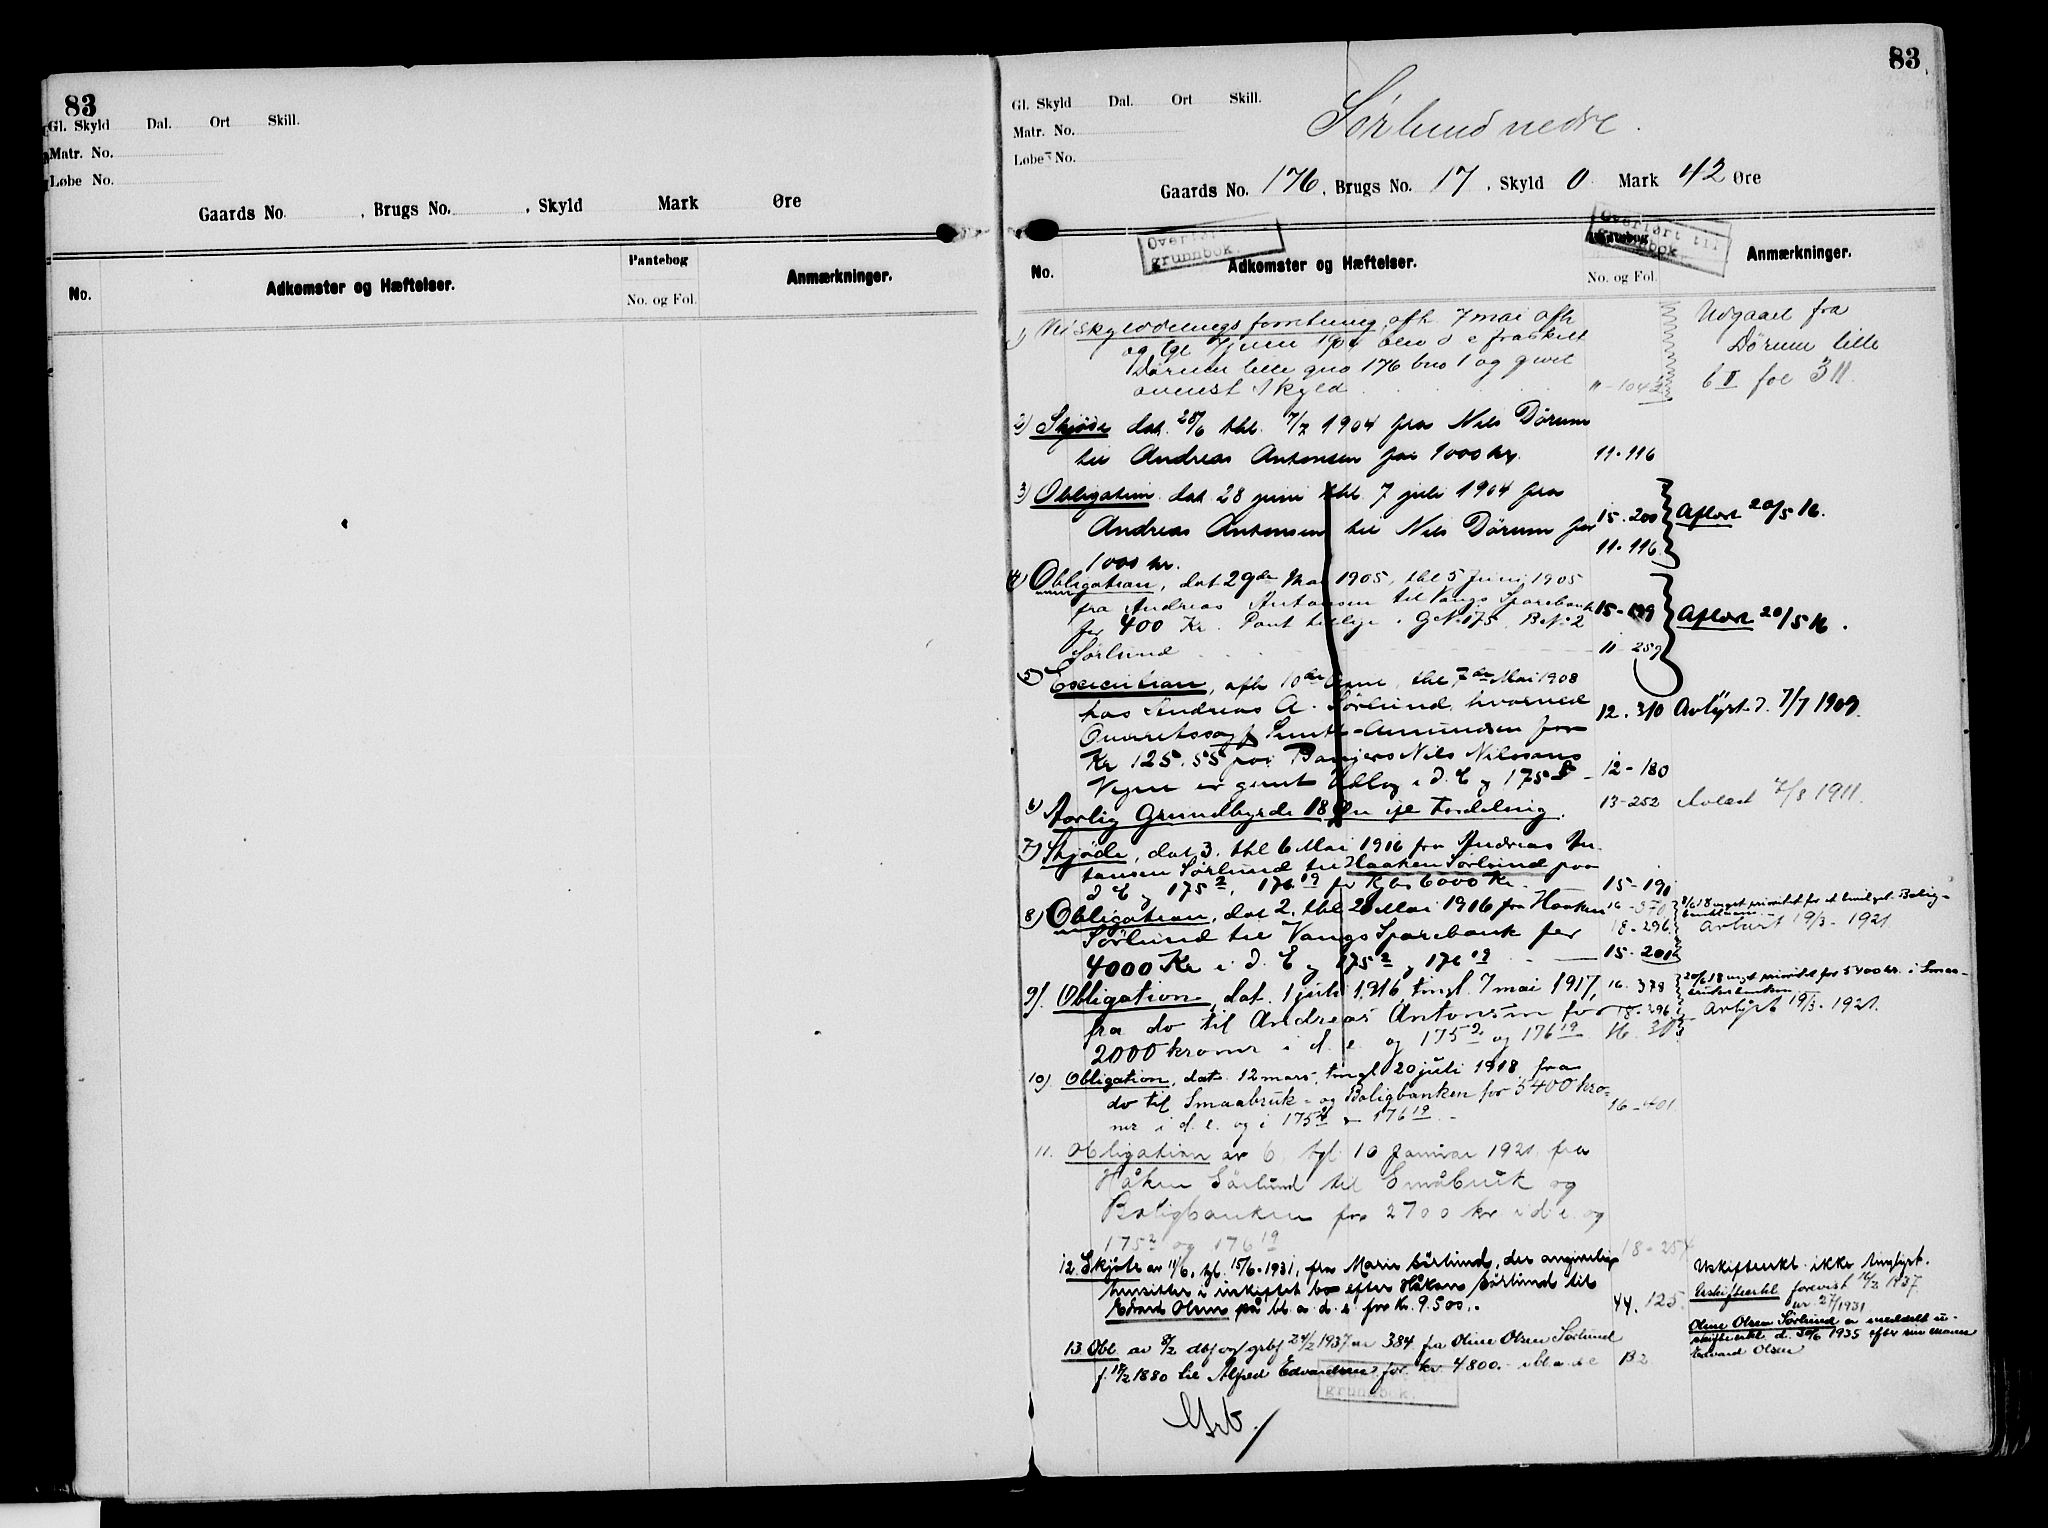 83
Gl. Skyld Dal. Ort Skill.
Matr. No.
Løbe No.
Gaards No. , Brugs No. , Skyld Mark Øre
No. Adkomster og Hæftelser. Pantebog No. og Fol. Anmærkninger.
83
Gl. Skyld Dal. Ort Skill.
Matr. No.
Løbe No.
Sørlund nedre.
Gaards No. 176, Brugs No. 17, Skyld 0 Mark 42 Øre
Overført til grunnbok.
No. Adkomster og Hæftelser. No. og Fol. Anmærkninger.
1) Ved skylddelingsforretning afh. 7 mai afh
og tgl 7 juni 1904 blev d e fraskilt
Dørum lille gno 176 bno 1 og givet
anført skyld 11-104
Udgaaet fra
Dørum lille
b II fol 311.
2) Skjøde dat. 28/6 thl. 7/7 1904 fra Nils Dørum
til Andreas Antonsen for 1000 kr. 11-116
3) Obligation dat 28 juni thl 7 juli 1904 fra 15-200 Aflæst 20/5 16.
Andreas Antonsen til Nils Dørum for 11-116
1000 kr.
4) Obligation, dat 29de Mai 1905, thl 5 Juni 1905
fra Andreas Antonsen til Vangs Sparebank 15-199 Aflæst 20/5 16.
for 400 Kr. Pant tillige i GNo 175, BNo 2
Sørlund 11-259
5) Execution, afh 10de, thl 7de Mai 1908
hos Andreas A. Sørlund, hvorved 12-310 Avlyst d. 7/7 1909.
Overretssagf Smith-Amundsen for
Kr 125.55 paa Nils Nilssens
Vegne er givet Udlæg i d. E og 175 2 12-180
6) Aarlig Grundbyrde 18 Øre ifl Fordeling. 13-252 Avlæst 7/3 1911.
7) Skjøde, dat 3. thl 6 Mai 1916 fra Andreas An-
tonsen Sørlund til Haaken Sørlund paa
d E og 175 2, 176 19 for Kjbs 6000 Kr. 15-191
8) Obligation, dat 2. thl 20 Mai 1916 fra Haaken 16-370
Sørlund til Vangs Sparebank for 18-296 Avlæst 19/3-1921
4000 Kr i d. E og 175 2 og 176 19 15-201
9). Obligation, dat. 1 juli 1916, tingl. 7 mai 1917, 16-378 20/6 18 veget prioritet for 5400 kr. i Smaa-
bruksbanken
fra do til Andreas Antonsen for 18-296 Avlyst 19/3-1921.
2000 kroner i d. e. og 175 2 og 176 19 16-303
10). Obligation, dat. 12 mars, tingl 20 juli 1918 fra
do til Smaabruk- og Boligbanken for 5400 kro-
ner i d. e. og i 175 2 og 176 19 16-401
11. Obligation av 6. tgl. 10 Januar 1921 fra
Håken Sørlund til Småbruk og
Boligbanken for 2700 kr i d. e. og
175 2 og 176 19 18-254
12. Skjøte av 11/6, tgl. 15/6-1931, fra Marie Sørlund, der angivelig
hensitter i uskiftet bo efter Håken Sørlund til
Edvard Olsen på bl. a. d. e. for kr. 9500,-. 44. 125.
Uskifteerkl. ikke tinglyst.
Uskifteerkl. forevist 16/2 1937.
nr 27/1931
Oline Olsen Sørlund er meddelt u-
skifteerkl. d. 30/6 1935 efter sin mann
Edvard Olsen
13. Obl. av 8/2 dbf og grbf 24/2 1937 nr 384 fra Oline Olsen Sørlund
f. 19/2 1880 til Alfred Edvardsen for kr. 4800.- i bl. a. d e B2
grunnbok.